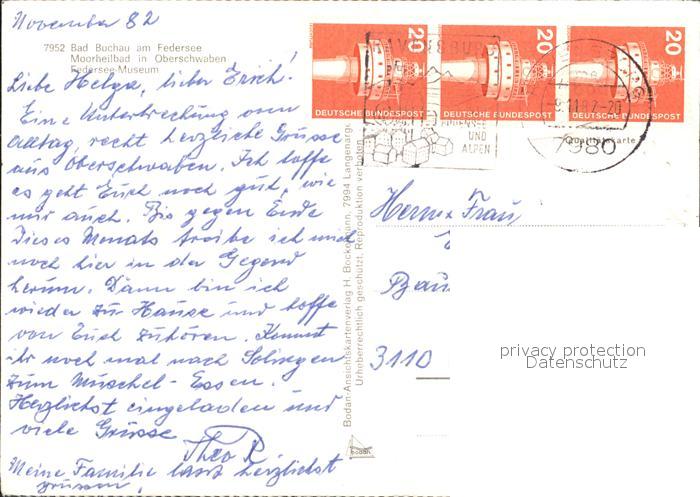 November 82
7952 Bad Buchau am Federsee
Moorheilbad in Oberschwaben
Federsee-Museum
Liebe Helga, lieber Erich!
Eine Unterbrechung vom
Alltag, recht herzliche Grüsse
aus Oberschwaben. Ich hoffe
es geht Euch noch gut, wie
mir auch. Bis gegen Ende
dieses Monats treibe ich mich
noch hier in der Gegend
herum. Dann bin ich
wieder zu Hause und hoffe
von Euch zu hören. Kommt
ihr noch mal nach Solingen
zum Muschel-Essen.
Herzlichst eingeladen und
viele Grüsse
Theo R
Meine Familie lässt herzlichst
grüssen.
Bodan-Ansichtskartenverlag H. Bockelmann, 7994 Langenargen
Urheberrechtlich geschützt, Reproduktion verboten
bodan
20
DEUTSCHE BUNDESPOST
20
DEUTSCHE BUNDESPOST
20
DEUTSCHE BUNDESPOST
RAVENSBURG
UND
ALPEN
-9.11.82-20
7980
Qualitätskarte
Herrn + Frau
Bau
3110
privacy protection
Datenschutz